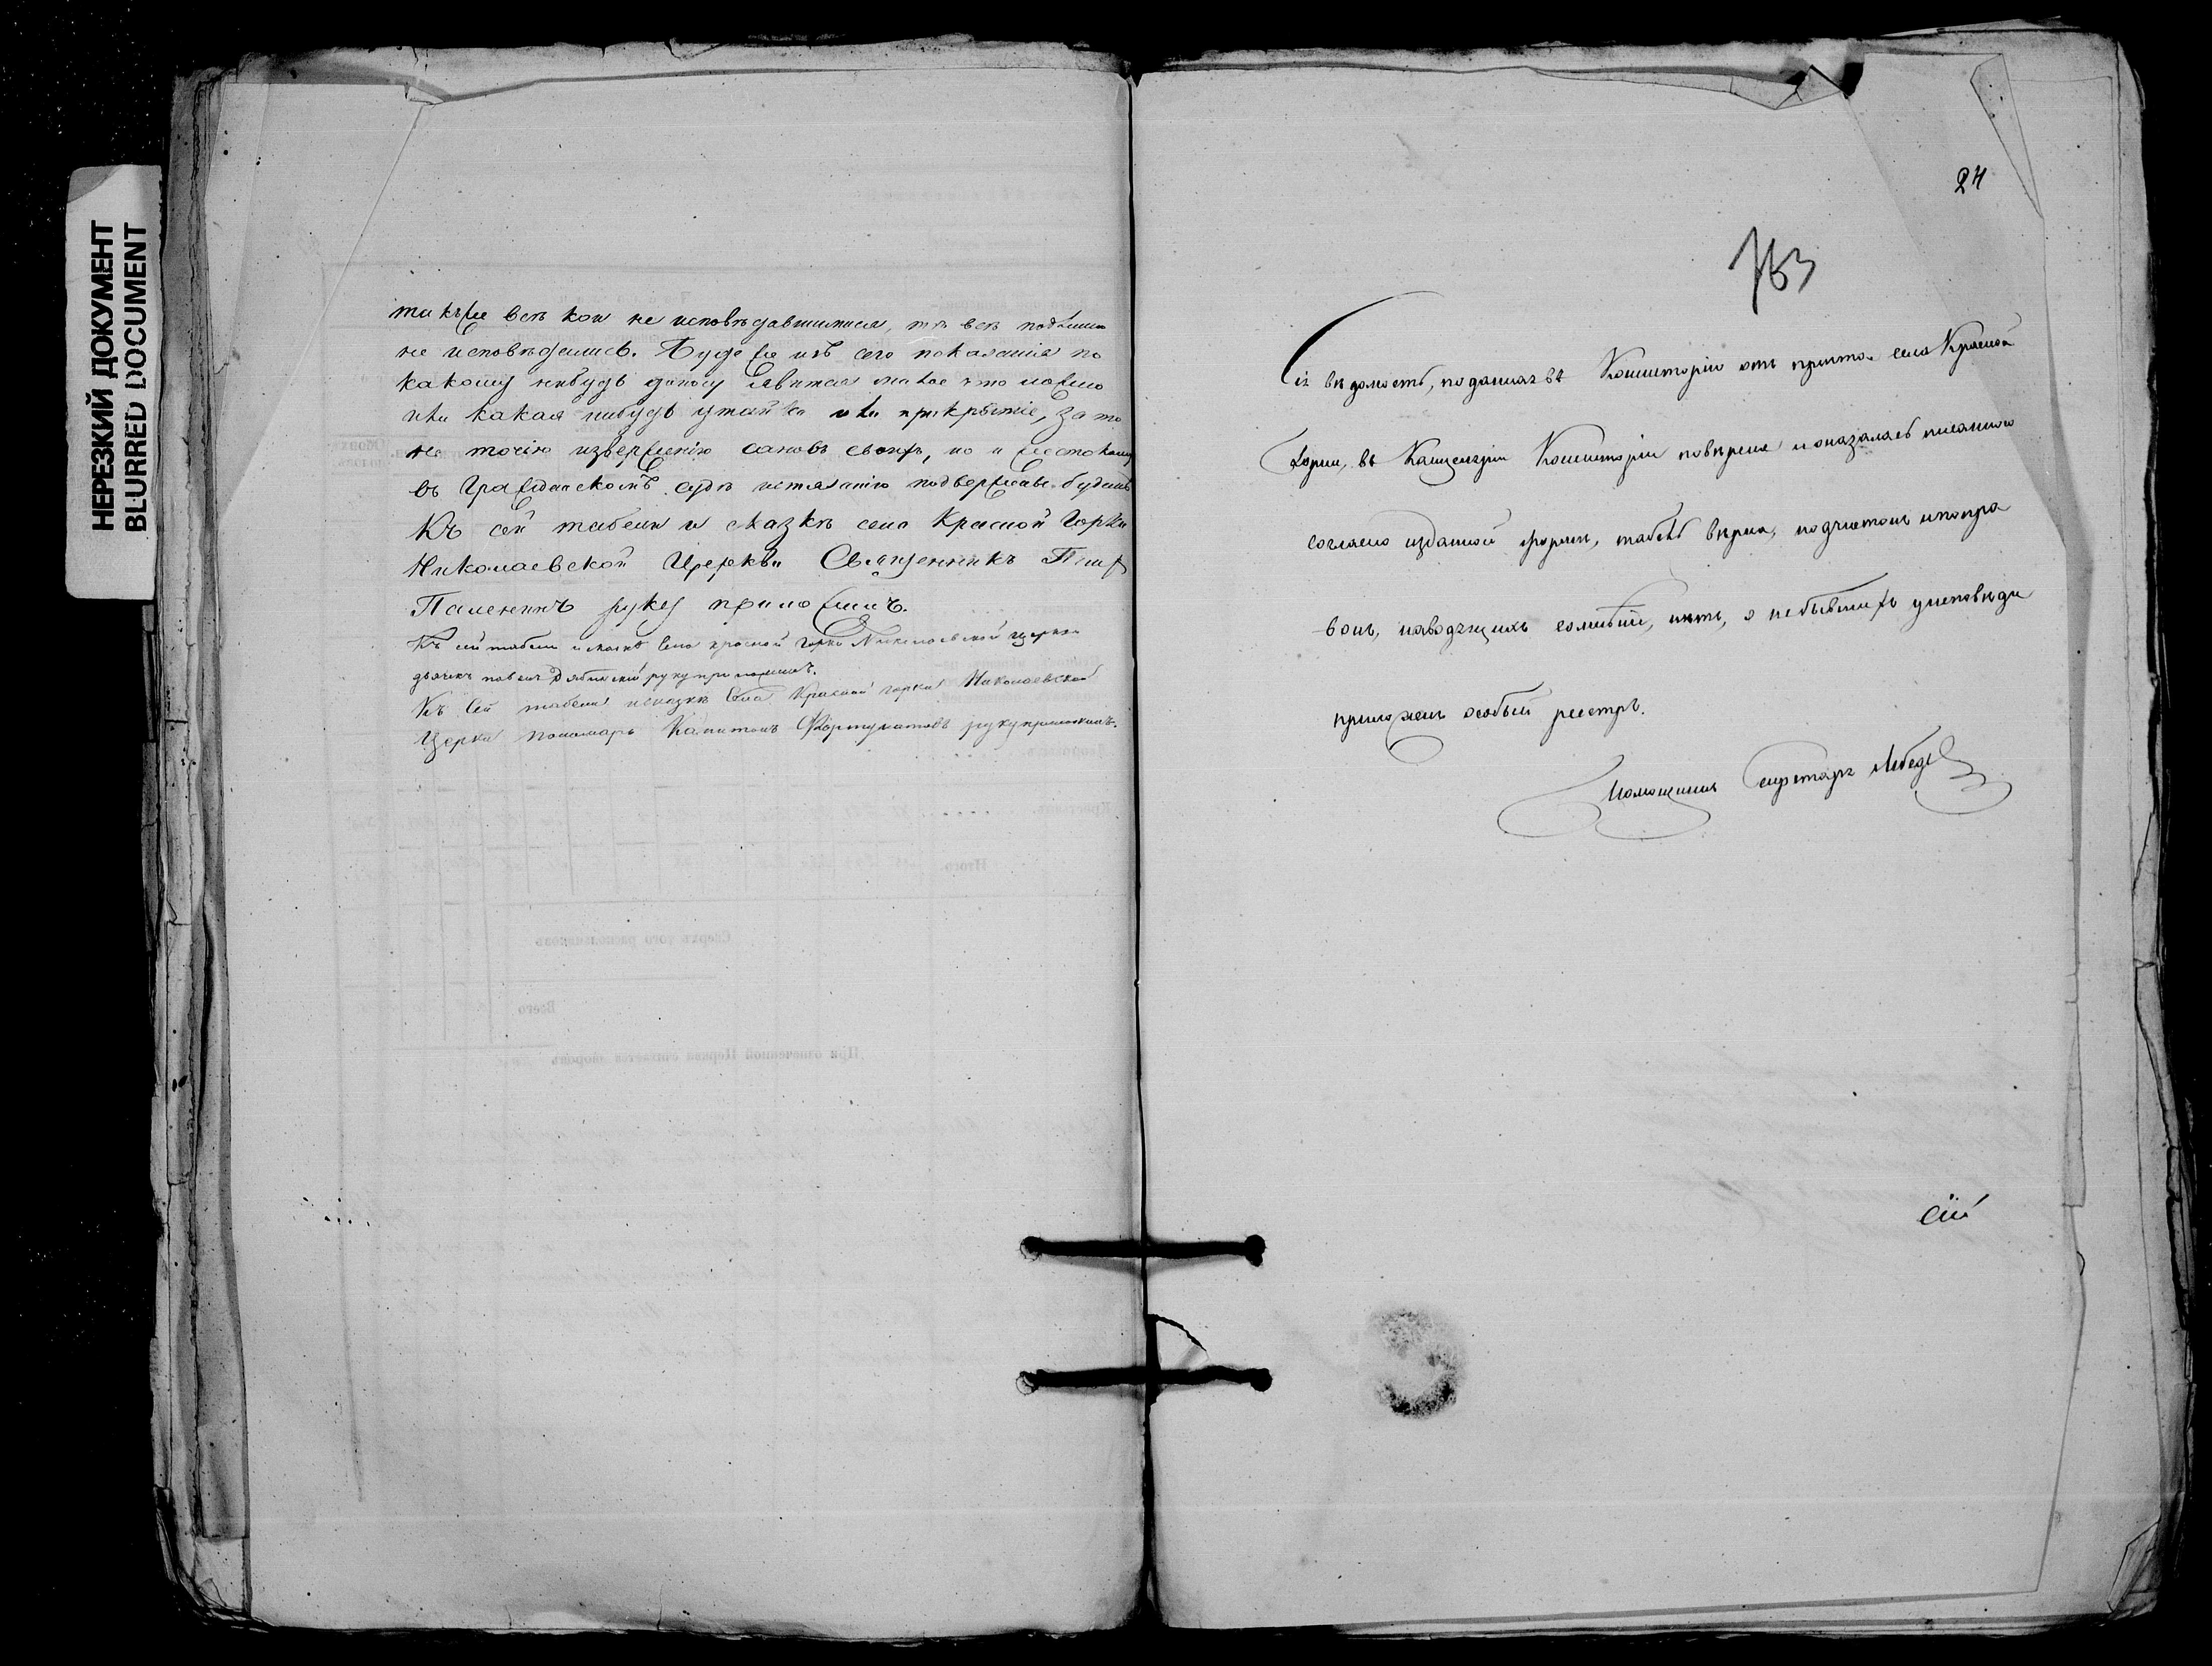 НЕРЕЗКИЙ ДОКУМЕНТ
BLURRED DOCUMENT
также всѣ кои не исповѣдавшимися, тѣ всѣ
не исповѣдались. Буде же изъ сего показанія по
какому нибудь доносу явится такое что ложно
или какая нибудь утайка или прикрытіе, за то
не точію изверженію сановъ своихъ, но и жестокому
въ Гражданскомъ судѣ истязанію подвержены будемъ
Къ сей табели и сказкѣ села Красной Горки
Николаевской Церкви Священникъ Петръ
руку приложилъ.
Къ сей табели и сказкѣ села красной горки Николаевской церкви
дьячекъ руку приложилъ.
Къ сей табели и сказкѣ села Красной горки Николаевской
Церкви пономарь Капитонъ Фортунатовъ руку приложилъ.
24
763
Сія вѣдомость, поданная въ Консисторію отъ причта села Красной
Горки, въ Канцеляріи Консисторіи повѣрена и оказалась писанною
согласно изданной формы, табель вѣрна, подчистокъ и попра
вокъ, наводящихъ сомнѣніе, нѣтъ, о небывшихъ у исповѣди
приложенъ особый реестръ.
Помощникъ Секретаря Лебедевъ
сій